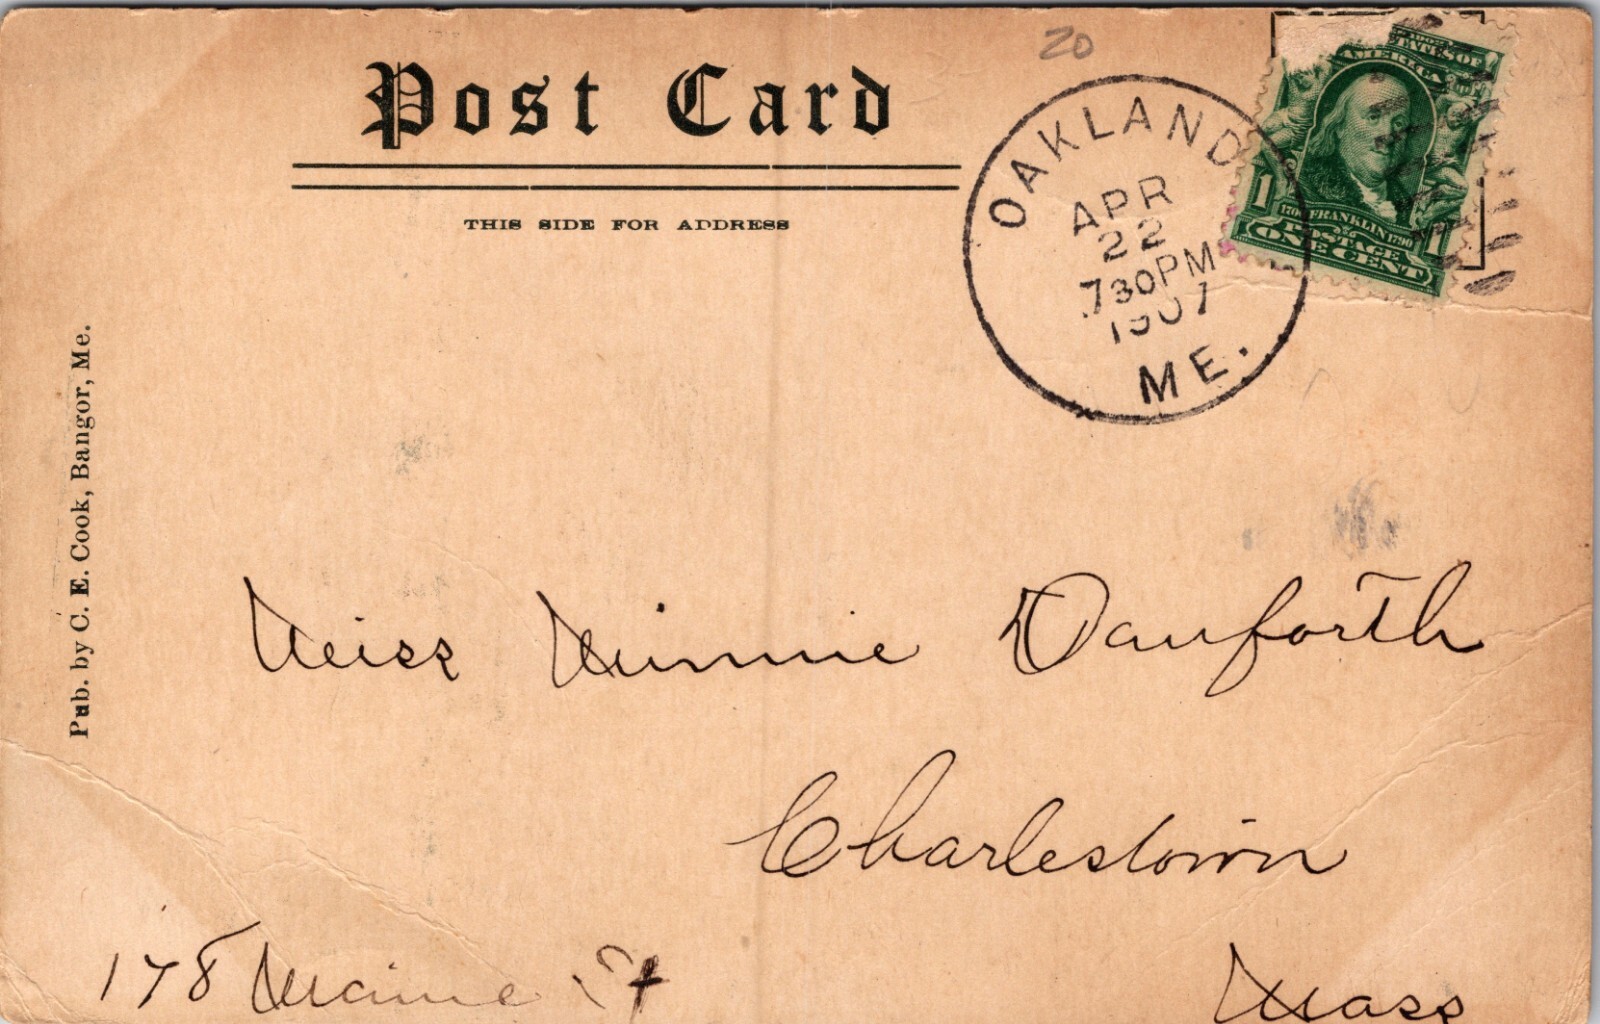 20
Post Card
THIS SIDE FOR ADDRESS
OAKLAND
APR
22
730PM
1907
ME.
STATES OF
AMERICA
1706 FRANKLIN 1790
1 POSTAGE 1
ONE CENT
Pub. by C. E. Cook, Bangor, Me.
Miss Minnie Danforth
Charlestown
178 Maine St
Mass